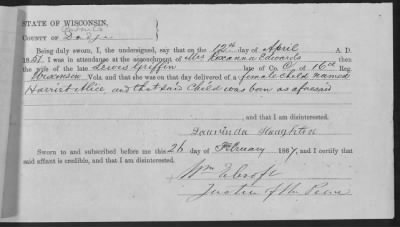 STATE OF WISCONSIN,
COUNTY OF Dodge
Being duly sworn, I, the undersigned, say that on the 12th day of April A. D.
1861. I was in attendance at the accouchment of Mrs Roxanna Edwards then
the wife of the late Lewis Griffin late of Co. 16th Reg.
Wisconsin Vols. and that she was on that day delivered of a female child named
Harriet Alice and that said Child was born as aforesaid
and that I am disinterested.
Laurinda Houghton
Sworn to and subscribed before me this 26 day of February 1867, and I certify that
said affiant is credible, and that I am disinterested.
Wm
Justice of the Peace